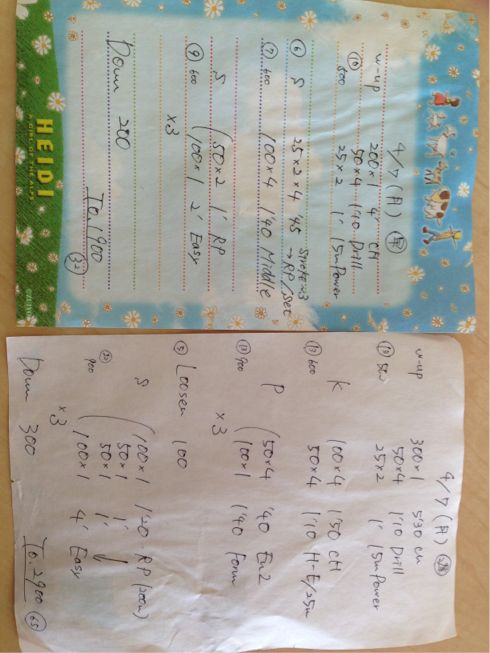 4/7 (月)
w-up 200×1 4' CH
⑩ 500 50×4 1'10 Drill
25×2 1' 15m Power
⑥ S 25×2×4 '45
→RP/Set
⑦ 600 100×4 1'40 Middle
S 50×2 1' RP
⑨ 600 100×1 2' Easy
×3
Down 200
To. 1900
HEIDI
4/7 (月)
w-up 300×1 5'30 CH
50×4 1'10 Drill
25×2 1' 15m Power
K 100×4 1'50 CH
⑬ 600 50×4 1'10 H-E/25m
P 50×4 '40 En2
⑬ 900 100×1 1'40 Form
×3
⑤ Loosen 100
S 100×1 1'20 RP (200m)
50×1 1'
900 50×1 1' ↓
×3 100×1 4' Easy
Down 300
To. 2900 65